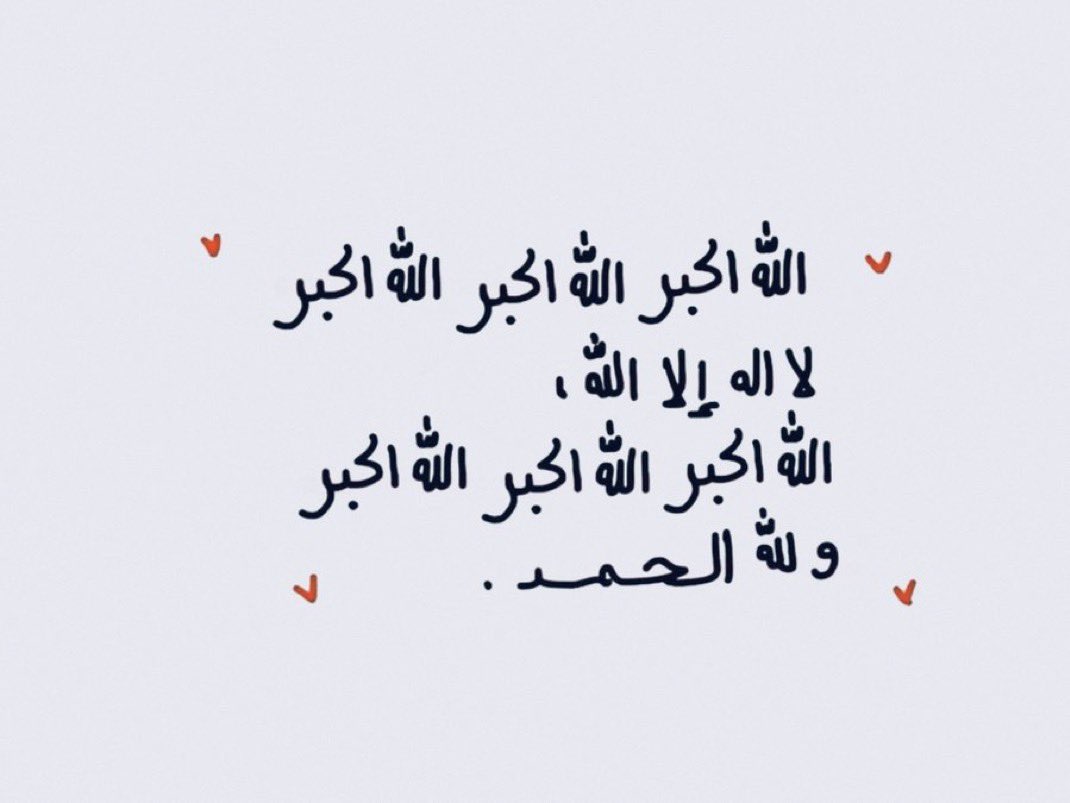 الله اكبر الله اكبر الله اكبر
لا اله إلا الله ،
الله اكبر الله اكبر الله اكبر
و لله الحمد .